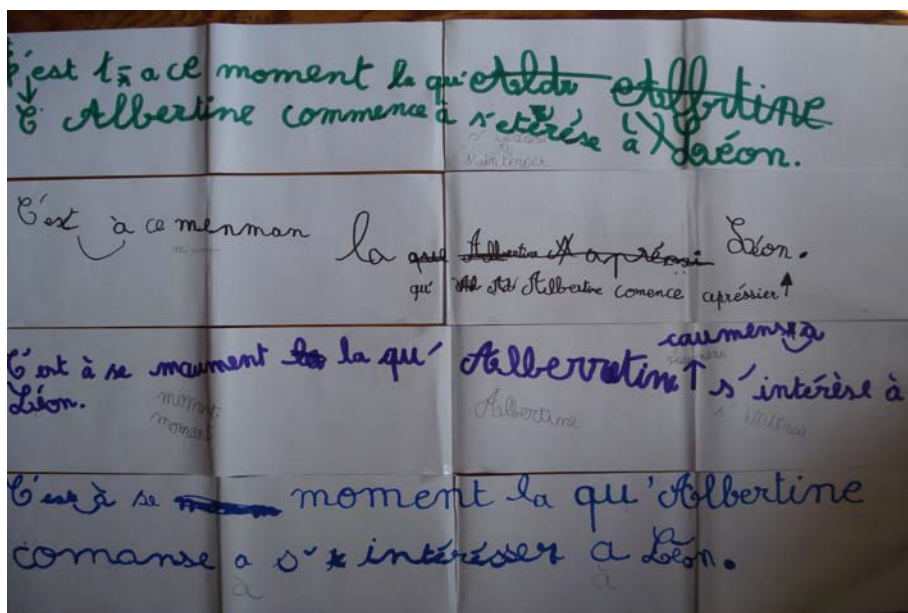 C'est t a ce moment la qu' Aldr Albrtine
C Albertine commence à s'etérése à Léon.
s'intéreser
C'est à ce menman la que Albertine A aprécsi Léon.
qu' Al Ad Albertine comence apréssier
caumense a
C'est à se maument la la qu' Alberretine s'intérèse à
Léon.
moment
moment
Albertine
C'est à se moment la qu'Albertine
comanse a s' intérésser a Léon.
à à